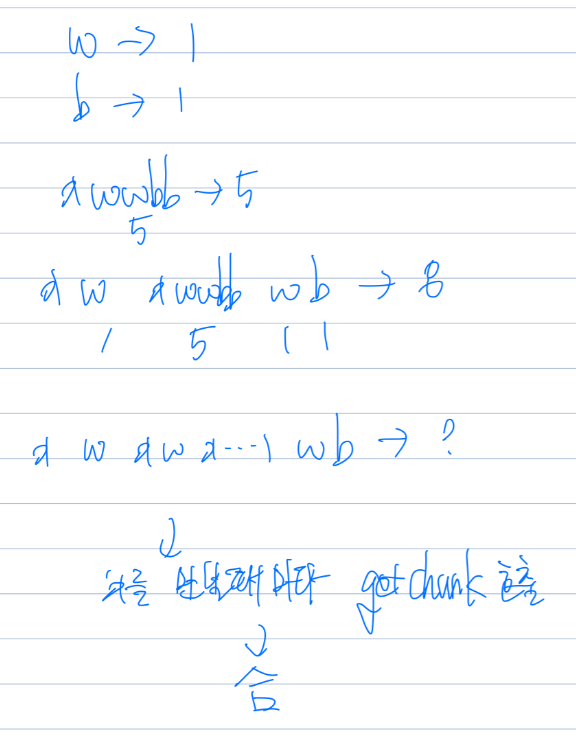 w → 1
b → 1
xwwbb → 5
5
x w xwwbb w b → 8
1 5 1 1
x w x w x ... w b → ?
↓
x를 만날때마다 get chunk 호출
↓
合